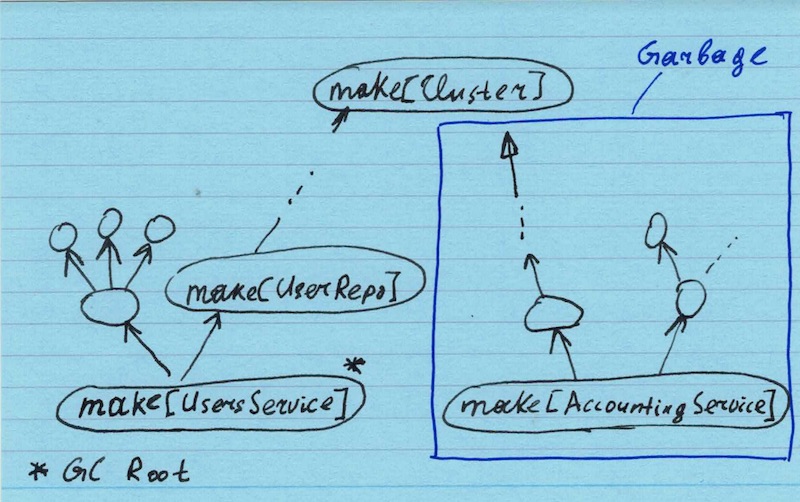 Garbage
make[Cluster]
make[UserRepo]
make[UsersService]*
make[AccountingService]
* GC Root